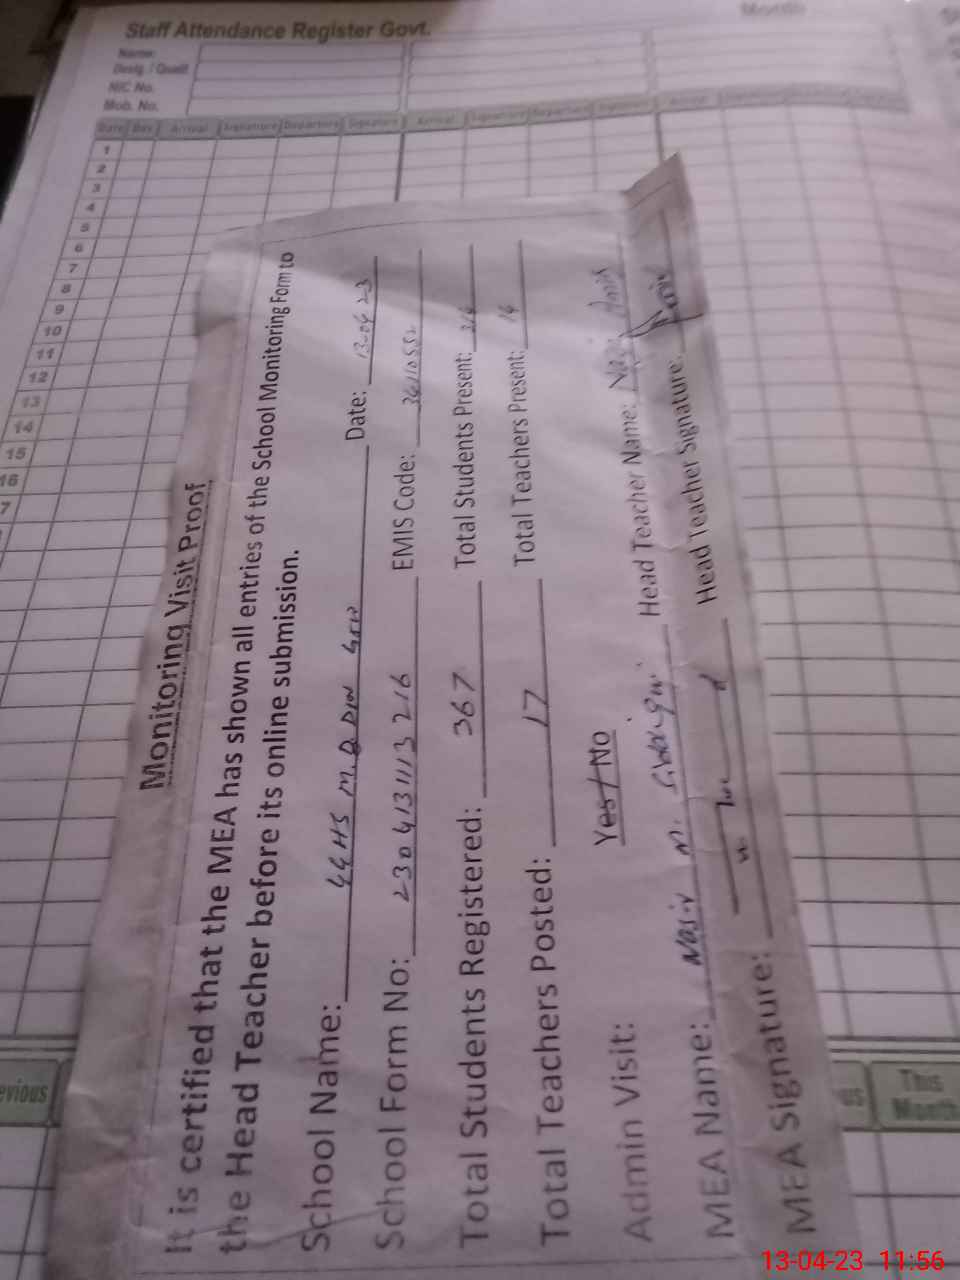 Staff Attendance Register Govt.
Month
Name:
Desig. / Qualif.
NIC No.
Mob. No.
Date Day Arrival Signature Departure Signature Arrival Signature Departure Signature Arrival
1
2
3
4
5
6
7
8
9
10
11
12
13
14
15
16
7
Monitoring Visit Proof
It is certified that the MEA has shown all entries of the School Monitoring Form to
the Head Teacher before its online submission.
School Name: GGHS M.B DIN Date: 13-04-23
School Form No: 230413113216 EMIS Code:
Total Students Registered: 367 Total Students Present:
Total Teachers Posted: 17 Total Teachers Present: 14
Admin Visit: Yes / No
MEA Name: Nasir M. Head Teacher Name:
MEA Signature: Head Teacher Signature:
evious
us
This
Month
13-04-23 11:56